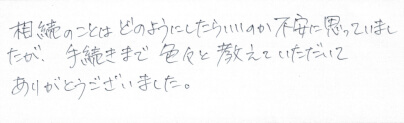 相続のことはどのようにしたらいいのか不安に思っていまし
たが、手続きまで色々と教えていただいて
ありがとうございました。